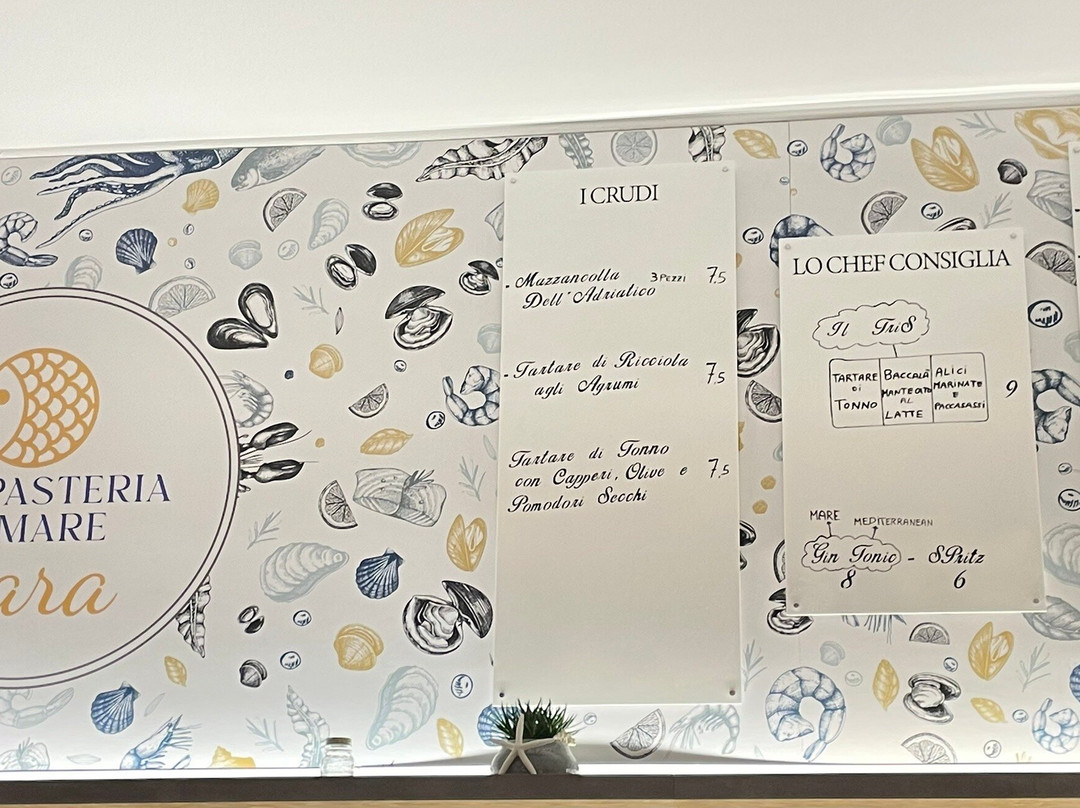 PASTERIA
MARE
ara
I CRUDI
- Mazzancolla 3 PEZZI 7,5
Dell'Adriatico
- Tartare di Ricciola 7,5
agli Agrumi
Tartare di Tonno
con Capperi, Olive e 7,5
Pomodori Secchi
LO CHEF CONSIGLIA
Il TriS
TARTARE DI TONNO
BACCALÀ MANTECATO AL LATTE
ALICI MARINATE E PACCASASSI
9
MARE MEDITERRANEAN
Gin Tonic - SPritz
8 6